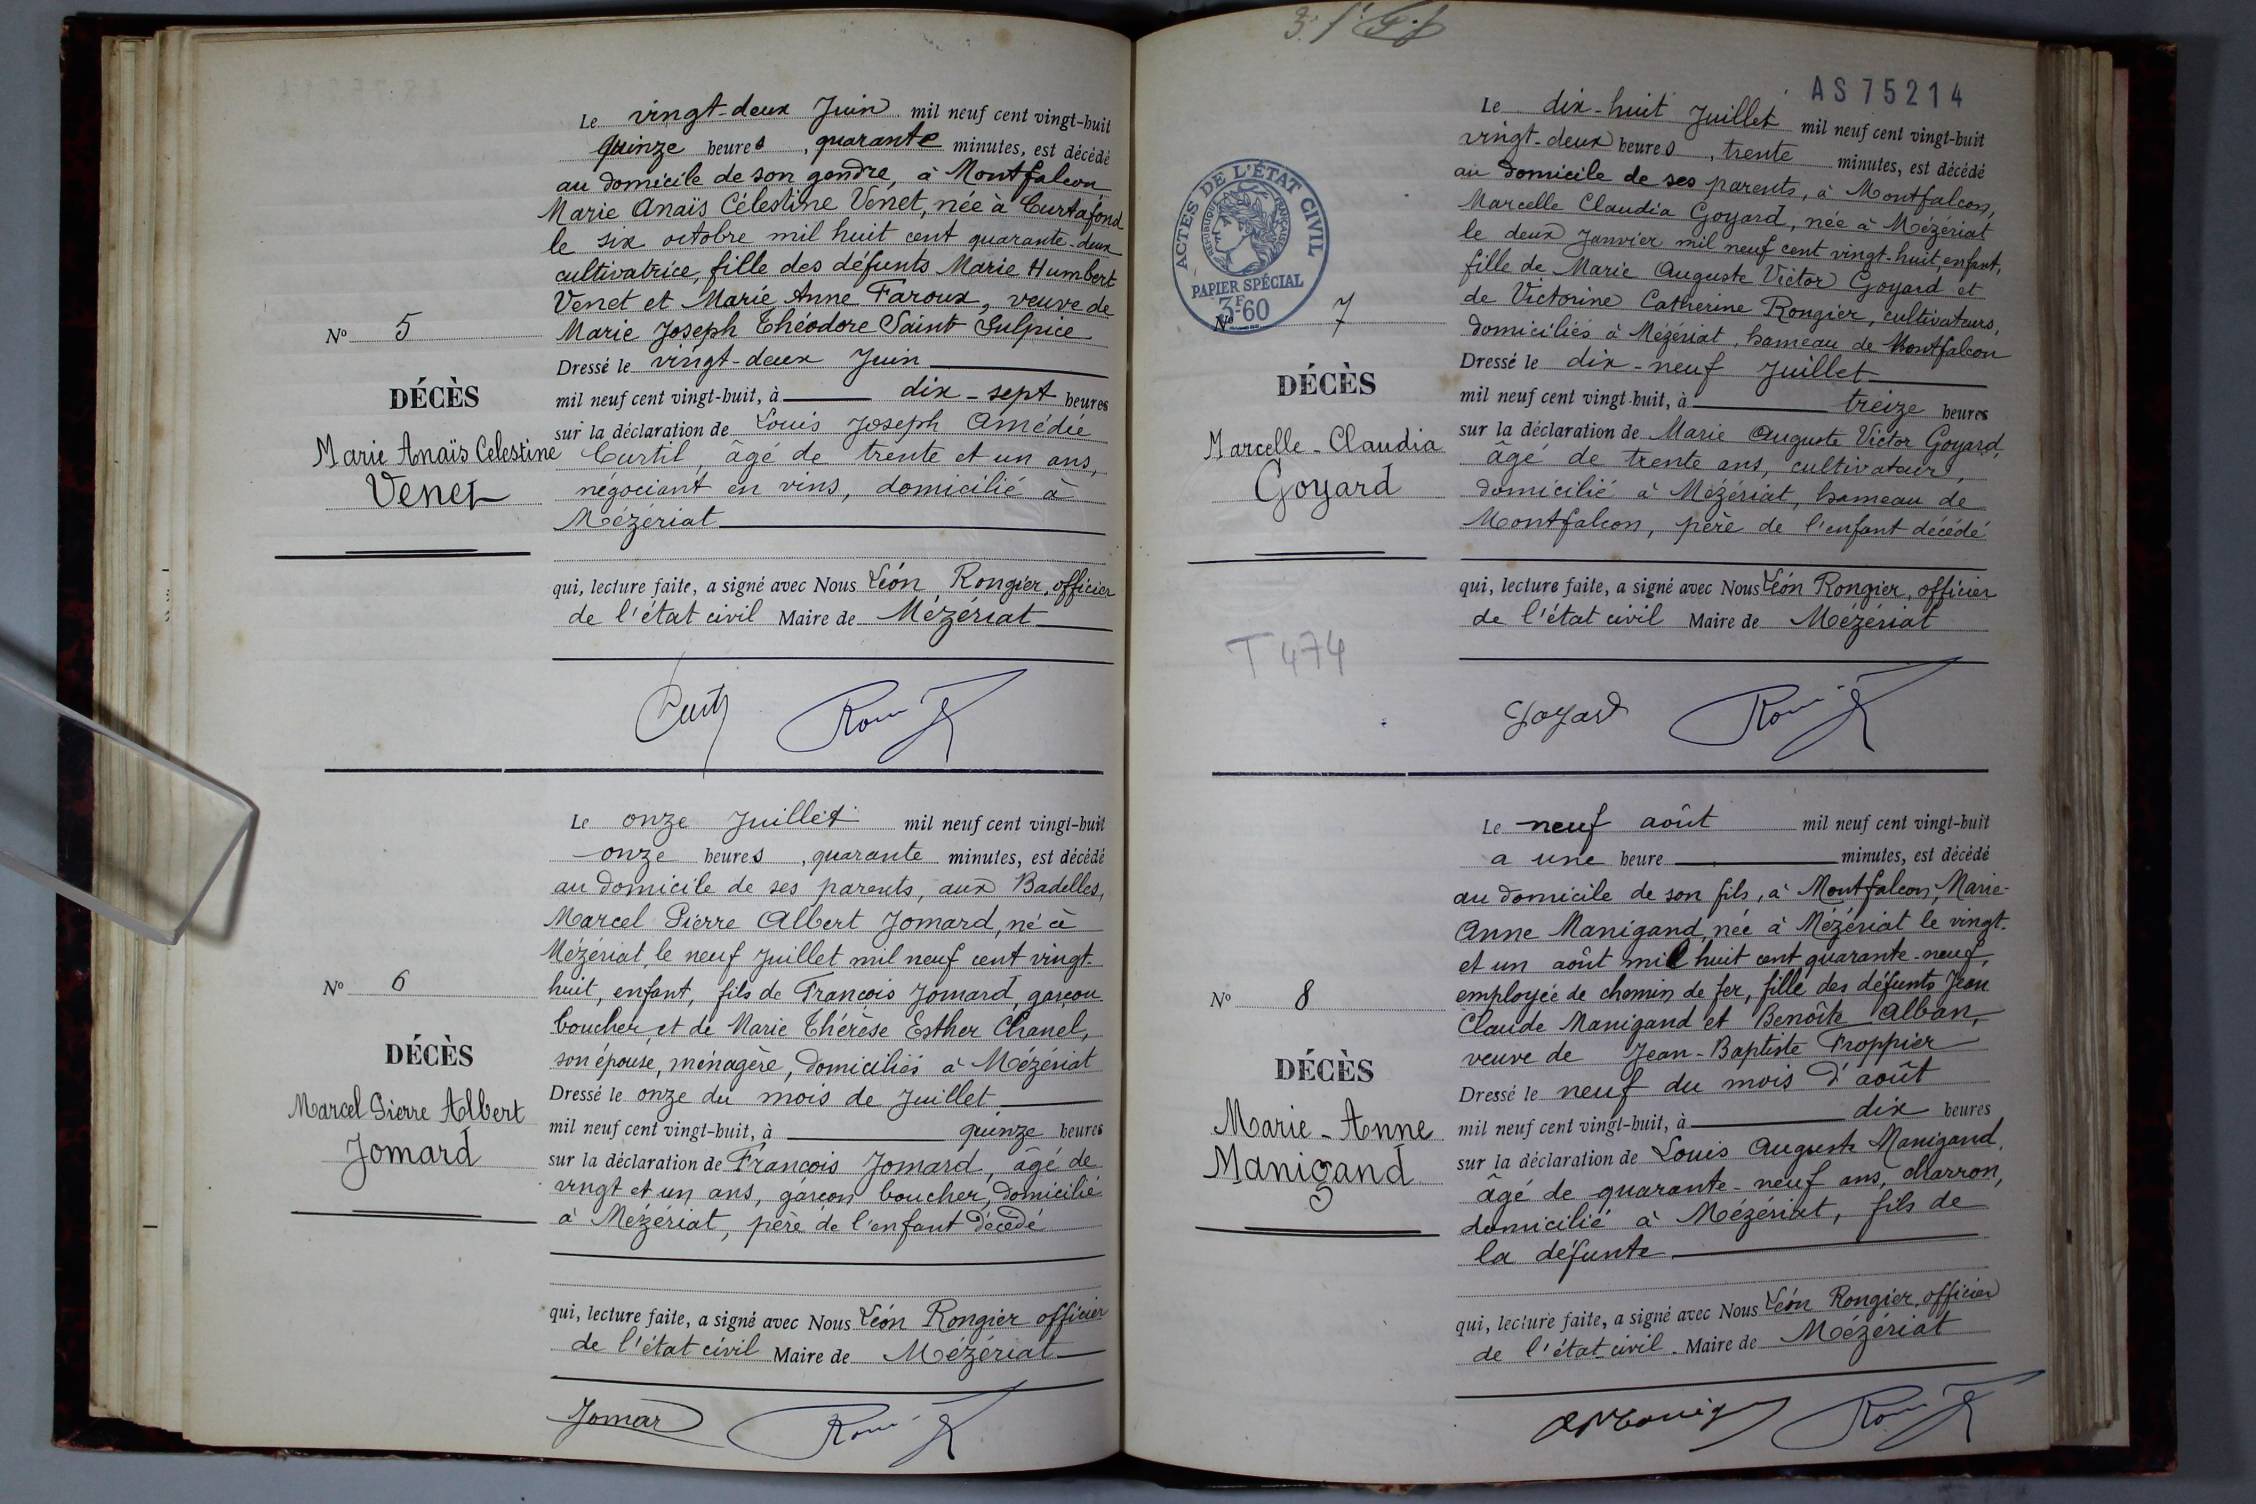 Le vingt-deux Juin mil neuf cent vingt-huit
quinze heures, quarante minutes, est décédé
au domicile de son gendre, à Montfalcon
Marie Anaïs Célestine Venet, née à Curtafond
le six octobre mil huit cent quarante-deux
cultivatrice, fille des défunts Marie Humbert
Venet et Marie Anne Faroux, veuve de
N° 5
Marie Joseph Théodore Saint Sulpice
Dressé le vingt-deux Juin
DÉCÈS
mil neuf cent vingt-huit, à dix-sept heures
sur la déclaration de Louis Joseph Amédée
Marie Anaïs Celestine
Curtil, âgé de trente et un ans,
Venet
négociant en vins, domicilié à
Mézériat
qui, lecture faite, a signé avec Nous Léon Rongier, officier
de l'état civil Maire de Mézériat
Le onze Juillet mil neuf cent vingt-huit
onze heures, quarante minutes, est décédé
au domicile de ses parents, aux Badelles,
Marcel Pierre Albert Jomard, né à
Mézériat, le neuf Juillet mil neuf cent vingt-
N° 6
huit, enfant, fils de François Jomard, garçon
boucher, et de Marie Thérèse Esther Chanel,
DÉCÈS
son épouse, ménagère, domiciliés à Mézériat
Dressé le onze du mois de Juillet
Marcel Pierre Albert
mil neuf cent vingt-huit, à quinze heures
Jomard
sur la déclaration de François Jomard, âgé de
vingt et un ans, garçon boucher, domicilié
à Mézériat, père de l'enfant décédé
qui, lecture faite, a signé avec Nous Léon Rongier officier
de l'état civil Maire de Mézériat
Jomard
AS 75214
Le dix-huit Juillet mil neuf cent vingt-huit
vingt-deux heures, trente minutes, est décédé
au domicile de ses parents, à Montfalcon,
Marcelle Claudia Goyard, née à Mézériat
le deux Janvier mil neuf cent vingt-huit, enfant,
fille de Marie Auguste Victor Goyard et
de Victorine Catherine Rongier, cultivateurs,
domiciliés à Mézériat, hameau de Montfalcon
ACTES DE L'ÉTAT CIVIL
RÉPUBLIQUE FRANÇAISE
PAPIER SPÉCIAL
3F60
N° 7
Dressé le dix-neuf Juillet
DÉCÈS
mil neuf cent vingt-huit, à treize heures
sur la déclaration de Marie Auguste Victor Goyard,
Marcelle-Claudia
âgé de trente ans, cultivateur,
Goyard
domicilié à Mézériat, hameau de
Montfalcon, père de l'enfant décédé
qui, lecture faite, a signé avec Nous Léon Rongier, officier
de l'état civil Maire de Mézériat
T 474
Goyard
Le neuf août mil neuf cent vingt-huit
a une heure minutes, est décédé
au domicile de son fils, à Montfalcon, Marie-
Anne Manigand, née à Mézériat le vingt-
et un août mil huit cent quarante-neuf,
N° 8
employée de chemin de fer, fille des défunts Jean
Claude Manigand et Benoîte Alban,
DÉCÈS
veuve de Jean-Baptiste Froppier
Dressé le neuf du mois d'août
Marie-Anne
mil neuf cent vingt-huit, à dix heures
Manigand
sur la déclaration de Louis Auguste Manigand,
âgé de quarante-neuf ans, charron,
domicilié à Mézériat, fils de
la défunte
qui, lecture faite, a signé avec Nous Léon Rongier, officier
de l'état civil. Maire de Mézériat